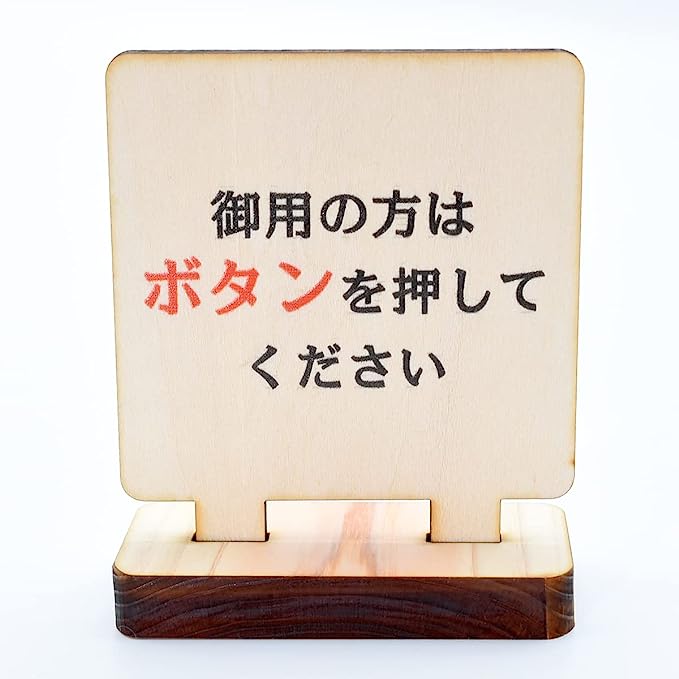 御用の方は
ボタンを押して
ください